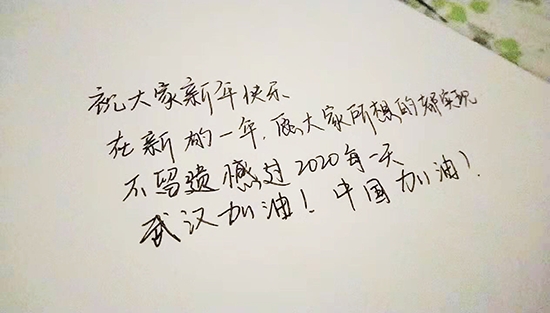 祝大家新年快乐
在新的一年，愿大家所想的都实现
不留遗憾过2020每一天
武汉加油！中国加油！